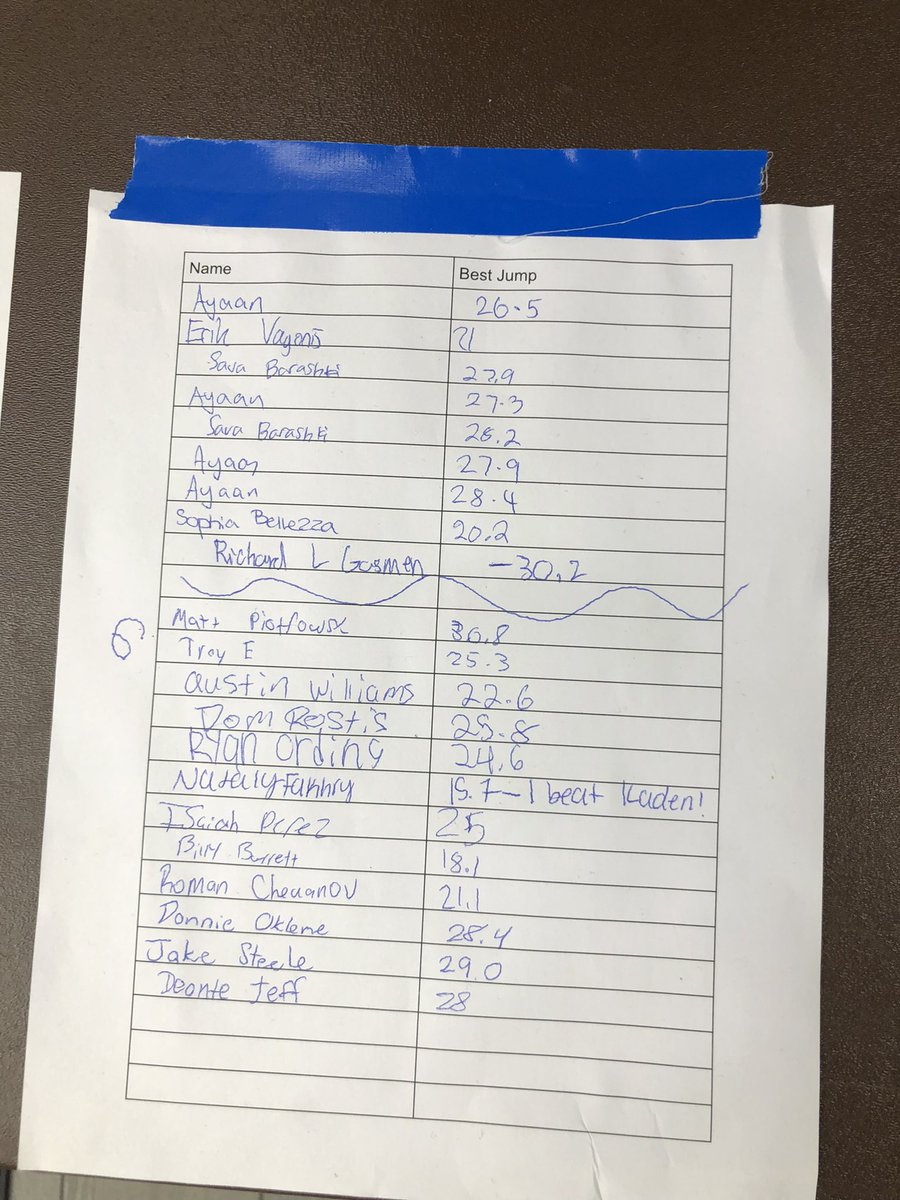 Name Best Jump
Ayaan 26.5
Erik 21
Sava Barashki 27.9
Ayaan 27.3
Sava Barashki 26.2
Ayaan 27.9
Ayaan 28.4
Sophia Bellezza 20.2
Richard L Gosmen -30.2
Matt
6 Troy E 25.3
Austin Williams 22.6
Dom Rostis 25.8
Ryan Ording 24.6
Nataly 15.7-I beat Kaden!
Isaiah Perez 25
Burrett 18.1
Roman 21.1
Donnie Oklene 28.4
Jake Steele 29.0
Deonte Jeff 28